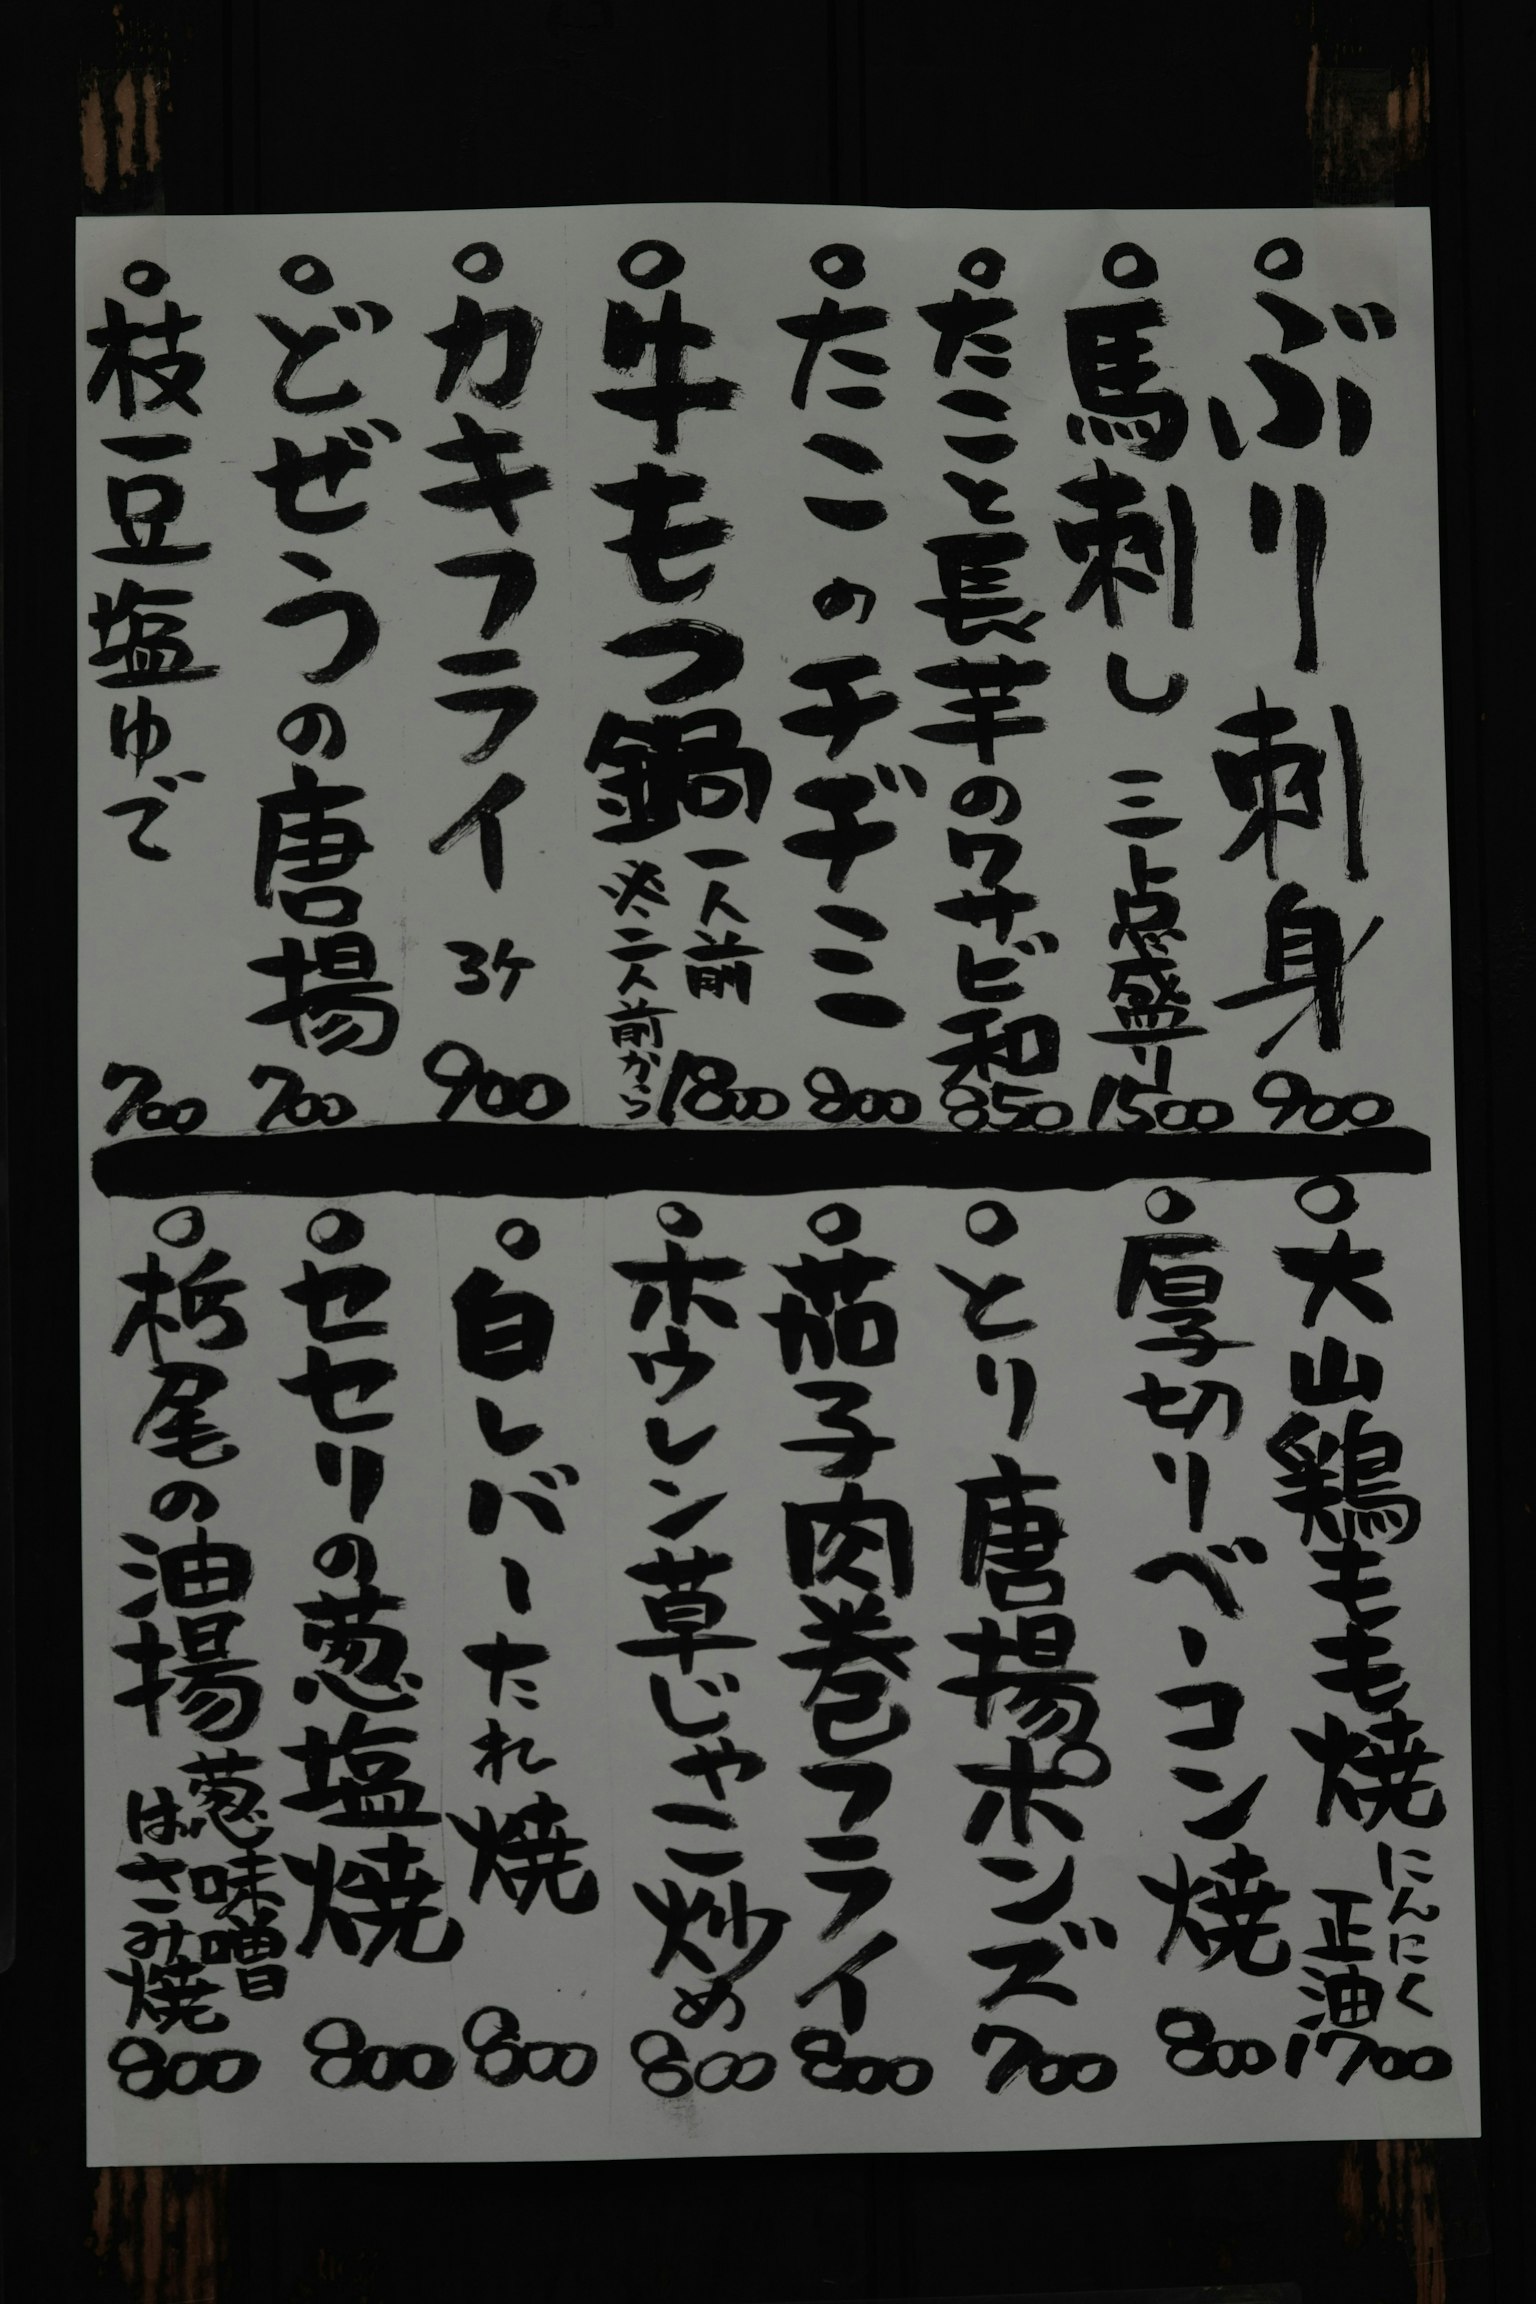 ○ぶり刺身 900
○馬刺し 三点盛り 1500
○たこと長芋のワサビ和 850
○たこのチヂミ 800
○牛もつ鍋 一人前 1800
※二人前から
○カキフライ 3ケ 900
○どぜうの唐揚 700
○枝豆塩ゆで 700
○大山鶏モモ焼 にんにく正油 1700
○厚切りベーコン焼 800
○とり唐揚ポンズ 700
○茄子肉巻フライ 800
○ホウレン草じゃこ炒め 800
○白レバーたれ焼 800
○セセリの葱塩焼 800
○栃尾の油揚 葱味噌はさみ焼 800